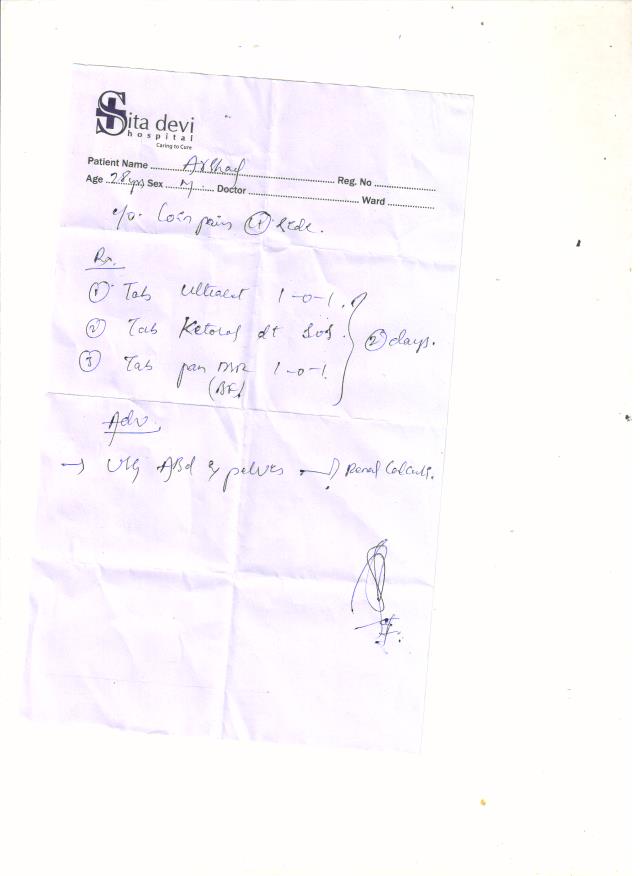 Sita devi
hospital
Caring to Cure
Patient Name ........ Arshad ........ Reg. No ........
Age 28 yrs Sex M Doctor ........ Ward ........
c/o Loin pain (Lt) side.
Rx.
① Tab Ultracet 1-0-1.
② Tab Ketorol dt SOS.
② days.
③ Tab pan DSR 1-0-1.
(BF)
Adv.
→ USG Abd & pelvis → Renal Calculi.